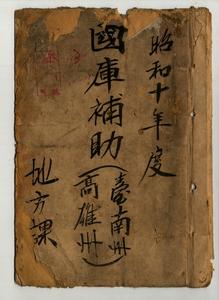 昭和十年度
國庫補助(臺南州
高雄州)
地方課